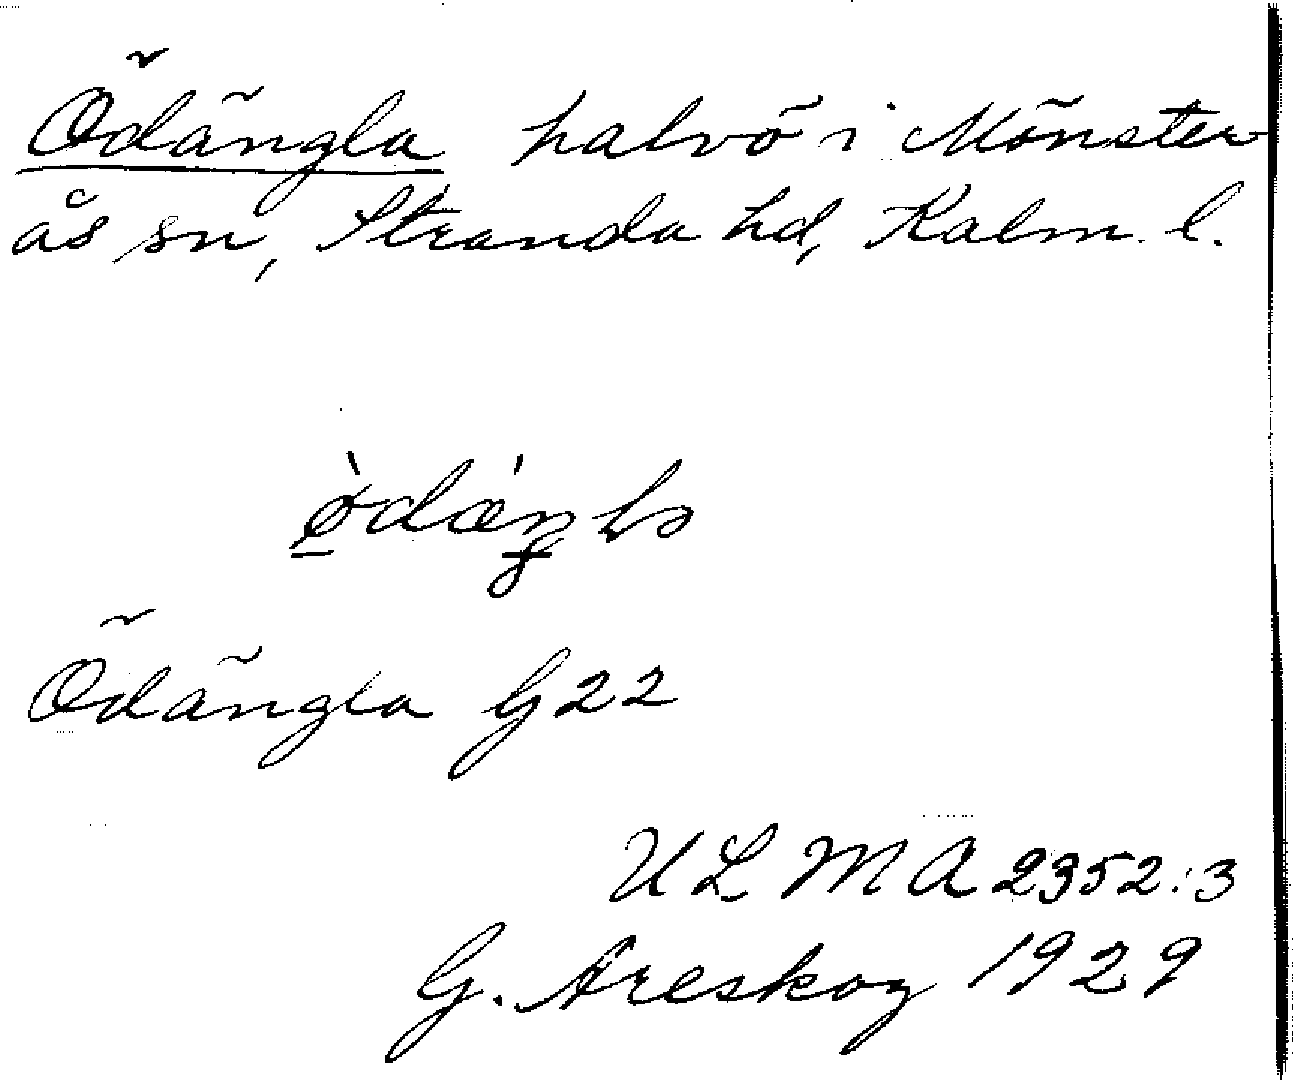 Ödängla halvö i Mönster-
ås sn, Stranda hd, Kalm. l.
ø̀dæŋ́la
Ödängla G22
ULMA 2352:3
G. Areskog 1929